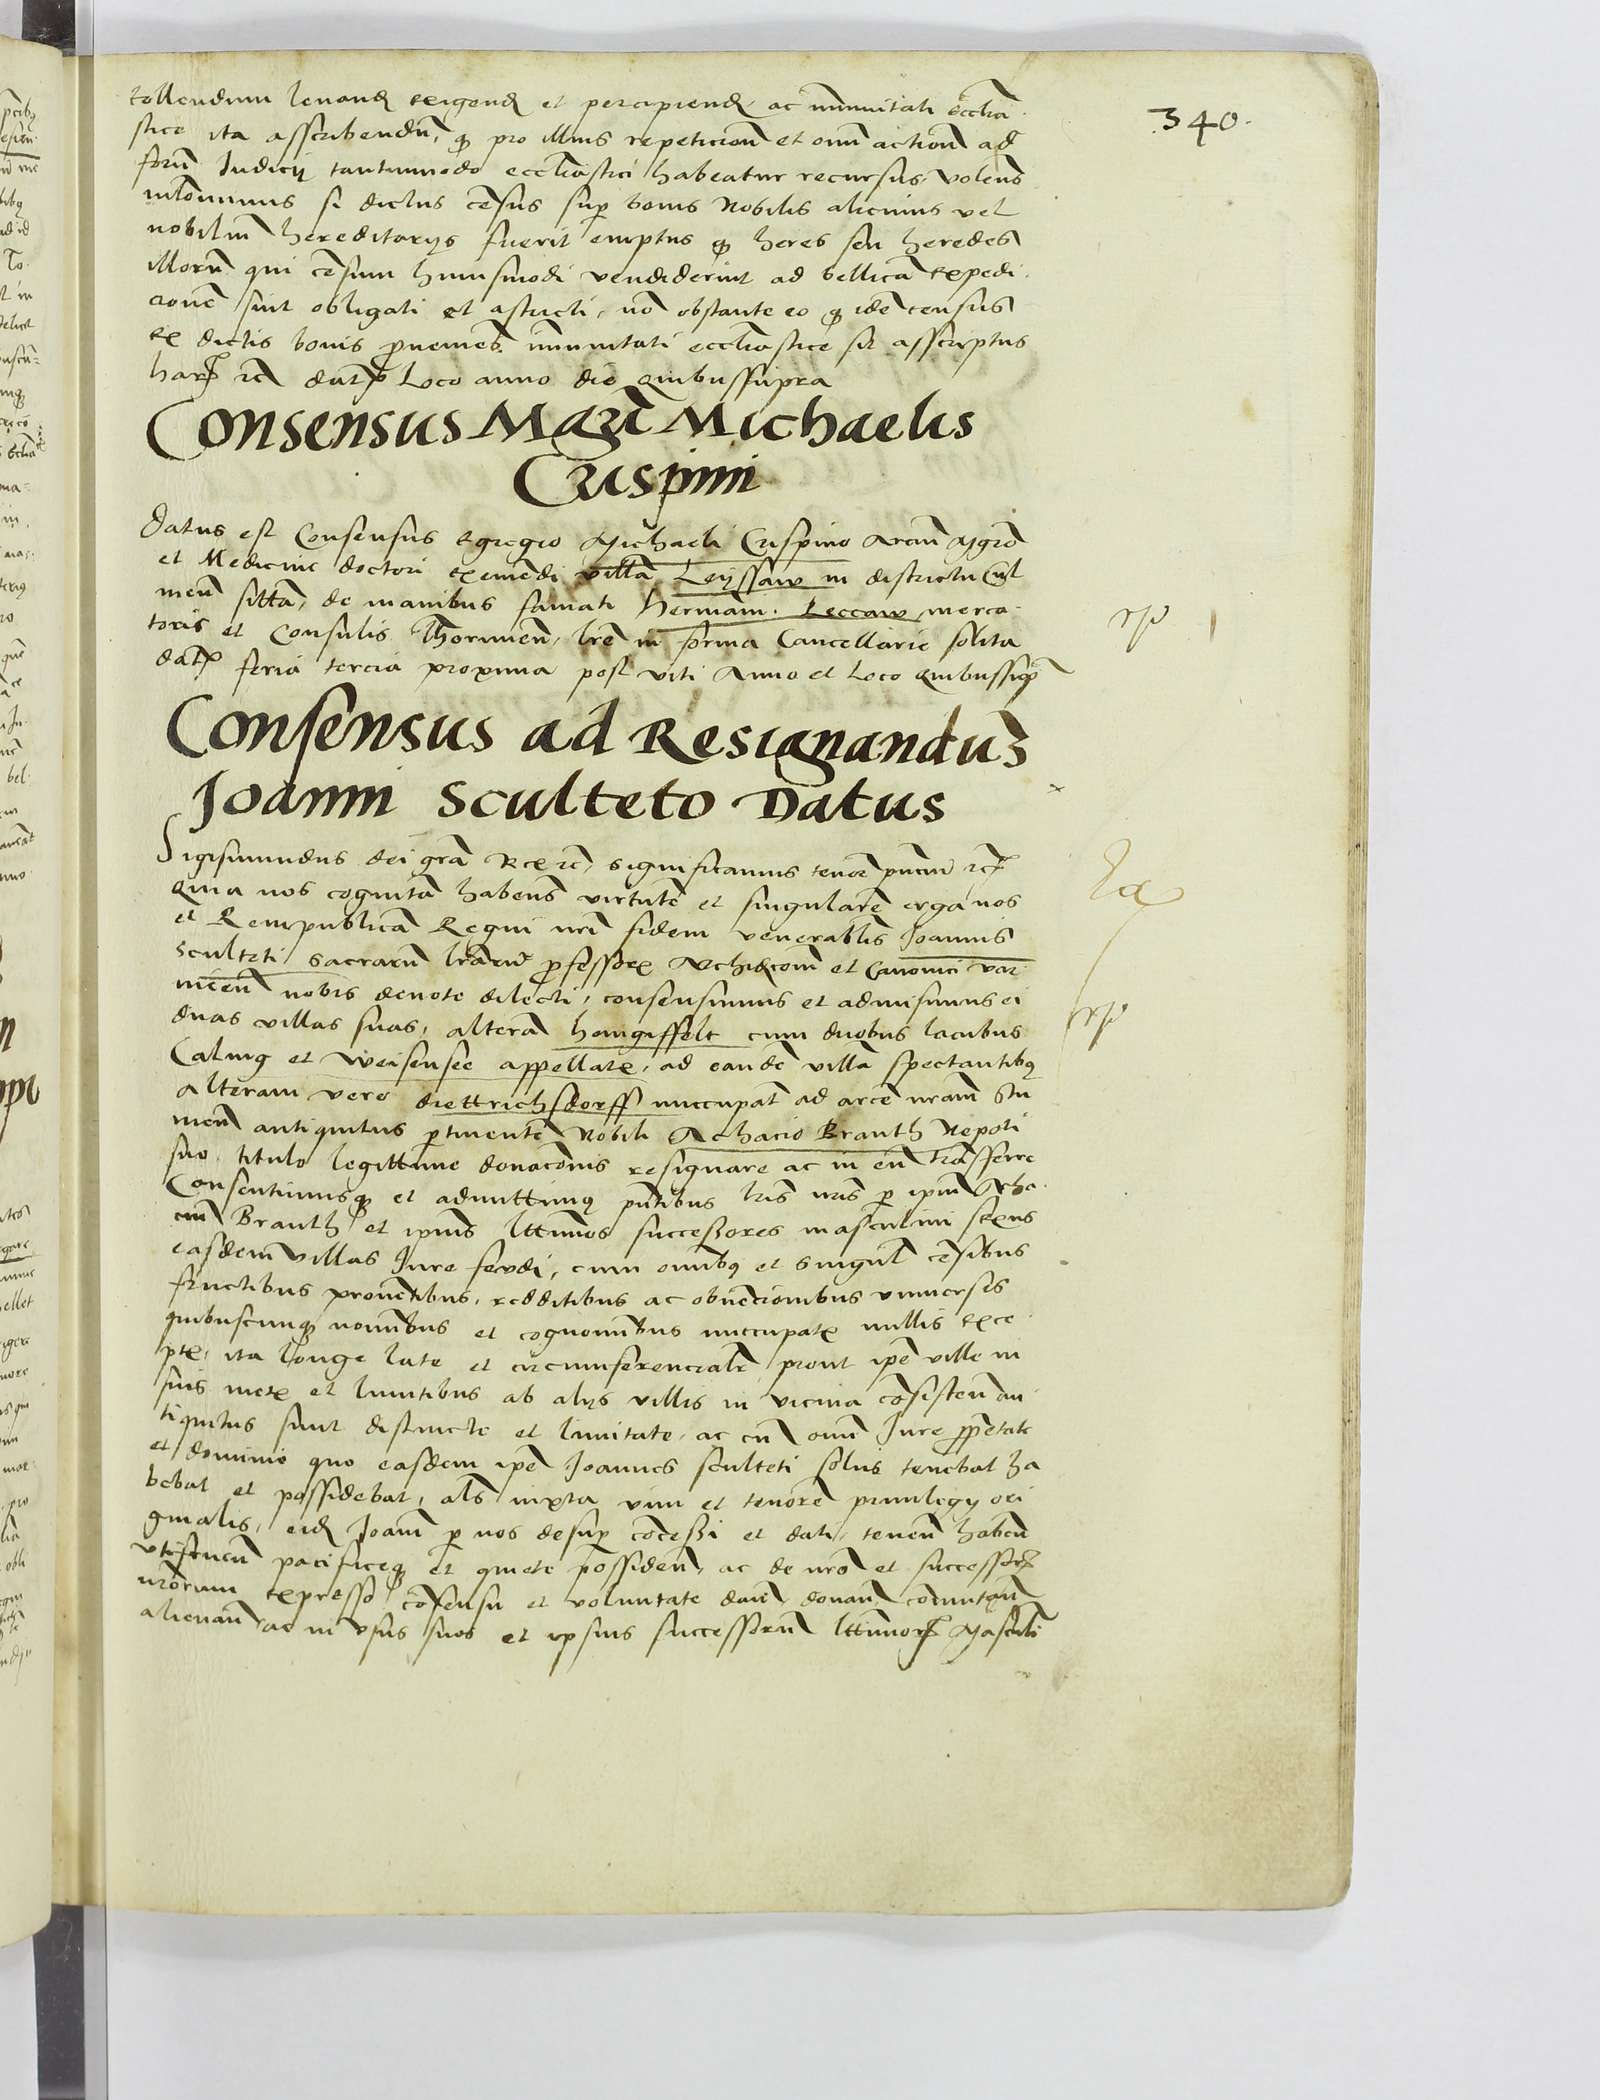 340.
tollendum levand exigend et percipiend, ac immunitati eccl̄ia
stice ita asscribendū, q pro illius repeticion̄ et om̄i action̄ ad
forū Iudicij tantummodo eccl̄iastici habeatur recursus, volens
nilominus si dictus cēsus sup bonis Nobilis alicuius vel
nobiliū hereditarijs fuerit emptus q heres seu heredes
illorū qui cēsum huiusmodi vendiderint ad bellicā expedi
cionē sint obligati et astricti, nō obstante eo q idē census
ex dictis bonis p̱veniēs im̄unitati eccl̄iastice sit asscriptus
har rc̄ dat Loco anno die quibussupra
Consensus Magr̄i Michaelis
Crispini
Datus est Consensus Egregio Michaeli Crispino Arciū Mgr̄o
et Medicine doctori exemēdi villā Leyssaw in districtu Cul
meñ sittā, de manibus famati Hermāni Leccaw merca
toris et Consulis Thoruneñ, lr̄e in forma Cancellarie solita
dat feria tercia proxima post viti Anno et Loco quibussup̄
Consensus ad Resignanduȝ
Joanni Sculteto Datus
Sigismundus dei gr̄a Rex rc̄, significamus tenore pn̄ciū rc̄
Quia nos cognitā habens virtutē et singularē erga nos
et Rempublicā Regni nr̄i fidem venerabilis Joannis
Sculteti sacrarū lr̄arū p̱fessorꝭ Archidiconi et Canonici var
mieñ nobis devote dilecti, consensimus et admisimus ei
duas villas suas, alterā Heingiffelt cum duobus lacubus
Calmg et Weisensee appellatꝭ, ad eandē villā spectantibꝯ
alteram vero Diettrichsdorff nuccupat ad arcē nr̄am Stu
meñ antiquitus p̱tinentē Nobili Achacio Branth Nepoti
suo, titulo legittime donacōnis resignare ac in eū trāsferre
Consentimusq et admittimꝯ pn̄tibus lr̄is nr̄is p̱ ipm̄ Acha
ciū Branth et ipius lttimos successores masculini sexus
easdem villas Iure feudi, cum om̄ibꝯ et singul cēsibus
fructibus proventibus, redditibus ac obvēcionibus universis
quibuscunq nomībus et cognomībus nuccupatꝭ nullis exce
ptꝭ, ita longe late et circumferencialr̄ prout ipē ville in
suis metꝭ et limitibus ab alijs villis in vicina cōsisteñ an
tiquitus sunt distincte et limitate, ac cū om̄i Iure pp̱etate
et dominio quo easdem ipē Joannes Sculteti solus tenebat ha
bebat et possidebat, als iuxta vim et tenorē privilegij ori
ginalis, eid Joañi p̱ nos desup cōcessi et dati, teneñ habeñ
vtifrueñ pacificeq et quiete possideñ, ac de nr̄o et successoꝝ
nr̄orum expresso cōsensu et voluntate dañ donañ cōmutañ
alienañ ac in vsus suos et ipsius successorū lttimoꝝ Masculi